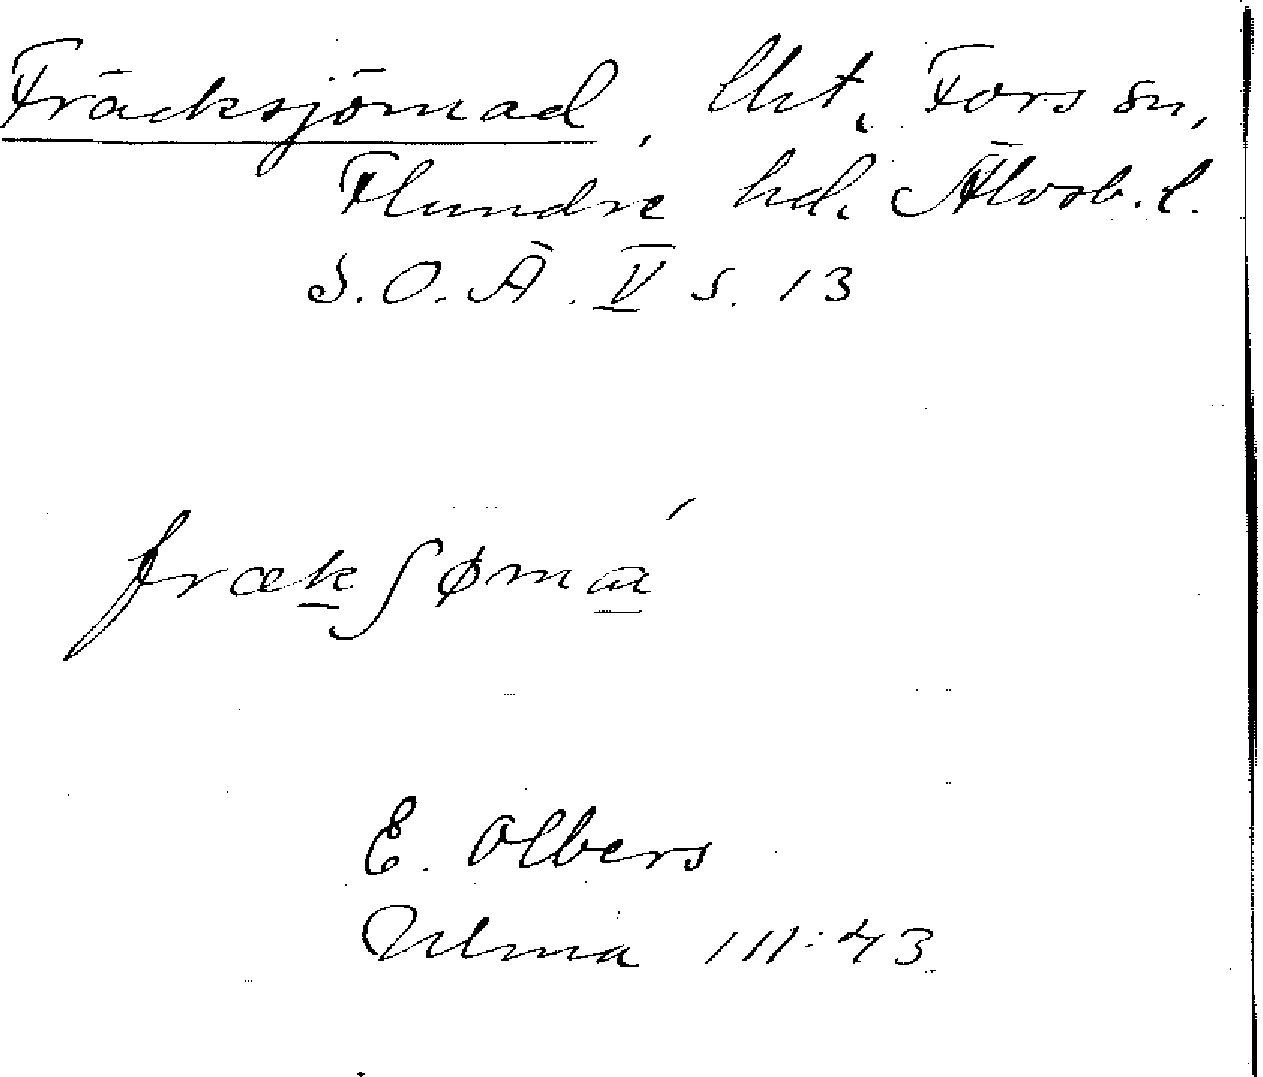 Fräcksjömad, lht. Fors sn,
Flundre hd. Älvsb. l.
S. O. Ä. V s. 13
frækʃømá
E. Olbers
Ulma 111:43